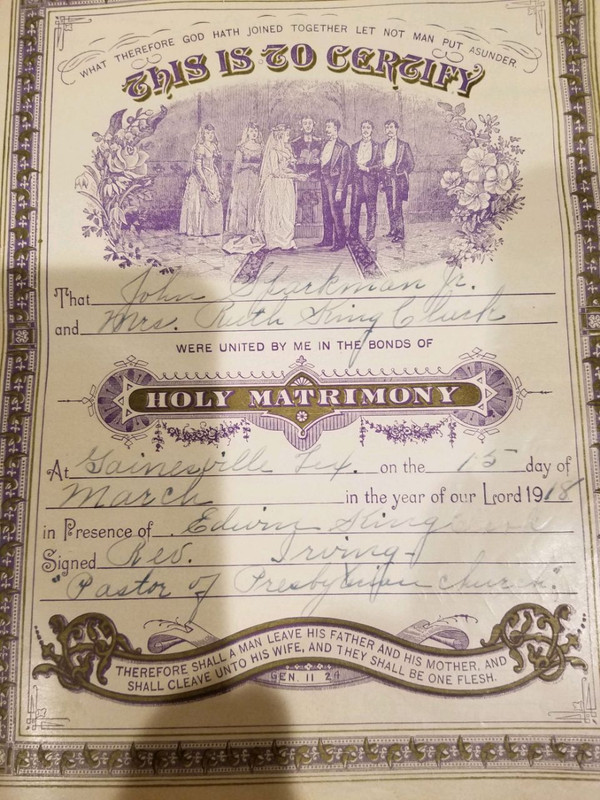 WHAT THEREFORE GOD HATH JOINED TOGETHER LET NOT MAN PUT ASUNDER.
THIS IS TO CERTIFY
That John Sparkman Jr.
and Mrs. Ruth King Cluck
WERE UNITED BY ME IN THE BONDS OF
HOLY MATRIMONY
At Gainesville Tex. on the 15 day of
March in the year of our Lord 1918
in Presence of Edwin King
Signed Rev. Irving
"Pastor of Presbyterian church".
THEREFORE SHALL A MAN LEAVE HIS FATHER AND HIS MOTHER, AND
SHALL CLEAVE UNTO HIS WIFE, AND THEY SHALL BE ONE FLESH.
GEN. 11 24